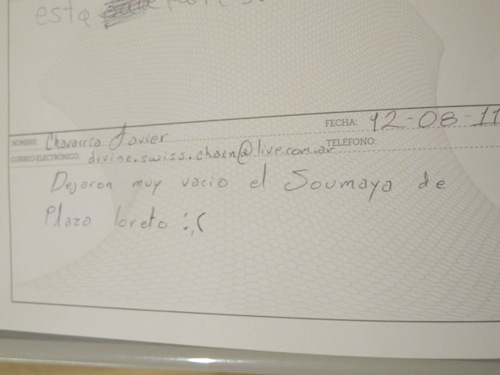 esta
FECHA: 12-08-11
NOMBRE: Chavarria Javier
TELÉFONO:
CORREO ELECTRÓNICO: divine.swiss.chaen@live.com.ar
Dejaron muy vacio el Soumaya de
Plaza loreto :,(